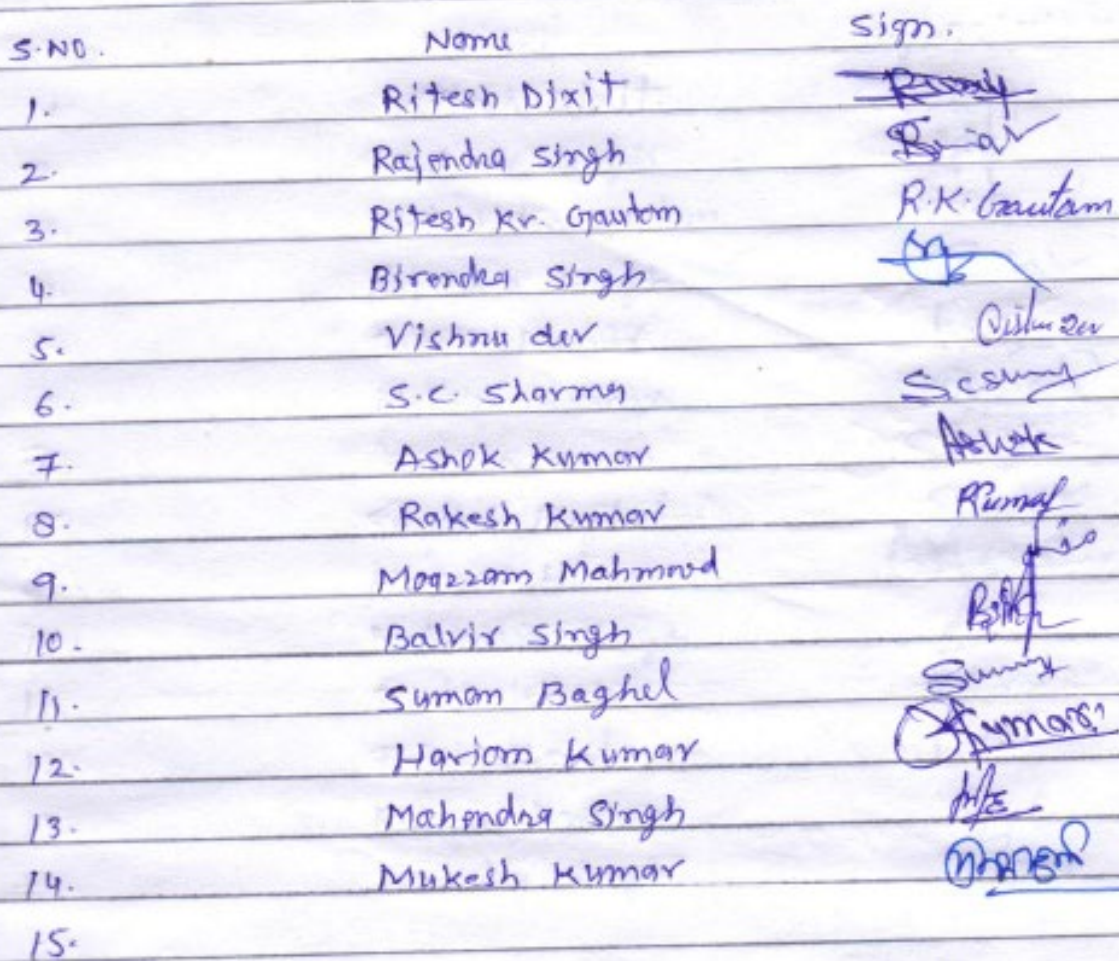 S.NO. Name Sign.
1. Ritesh Dixit
2. Rajendra Singh
3. Ritesh Kr. Gautam R.K. Gautam
4. Birendra Singh
5. Vishnu dev
6. S.C. Sharma
7. Ashok Kumar Ashok
8. Rakesh Kumar
9. Moazzam Mahmood
10. Balvir Singh
11. Suman Baghel
12. Hariom Kumar Kumar
13. Mahendra Singh
14. Mukesh Kumar
15.